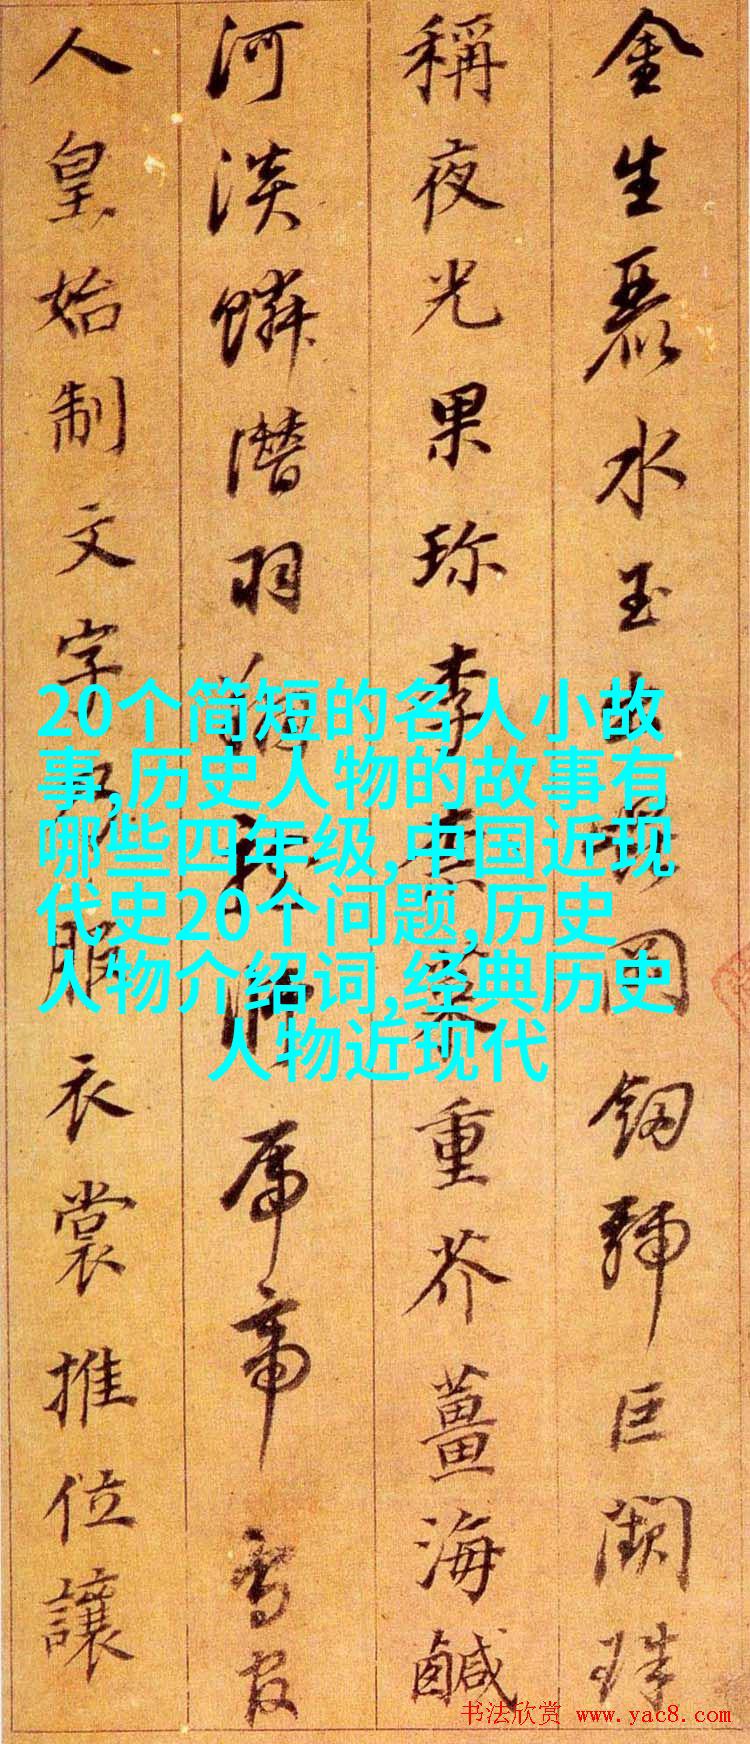 金生麗水玉出崑岡劒號巨闕珠
稱夜光果珎李柰菜重芥薑海鹹
河淡鱗潛羽翔龍師帝鳥官
人皇始制文字乃服衣裳推位讓
20个简短的名人小故
事,历史人物的故事有
哪些四年级,中国近现
代史20个问题,历史
人物介绍词,经典历史
人物近现代
书法欣赏 www.yac8.com